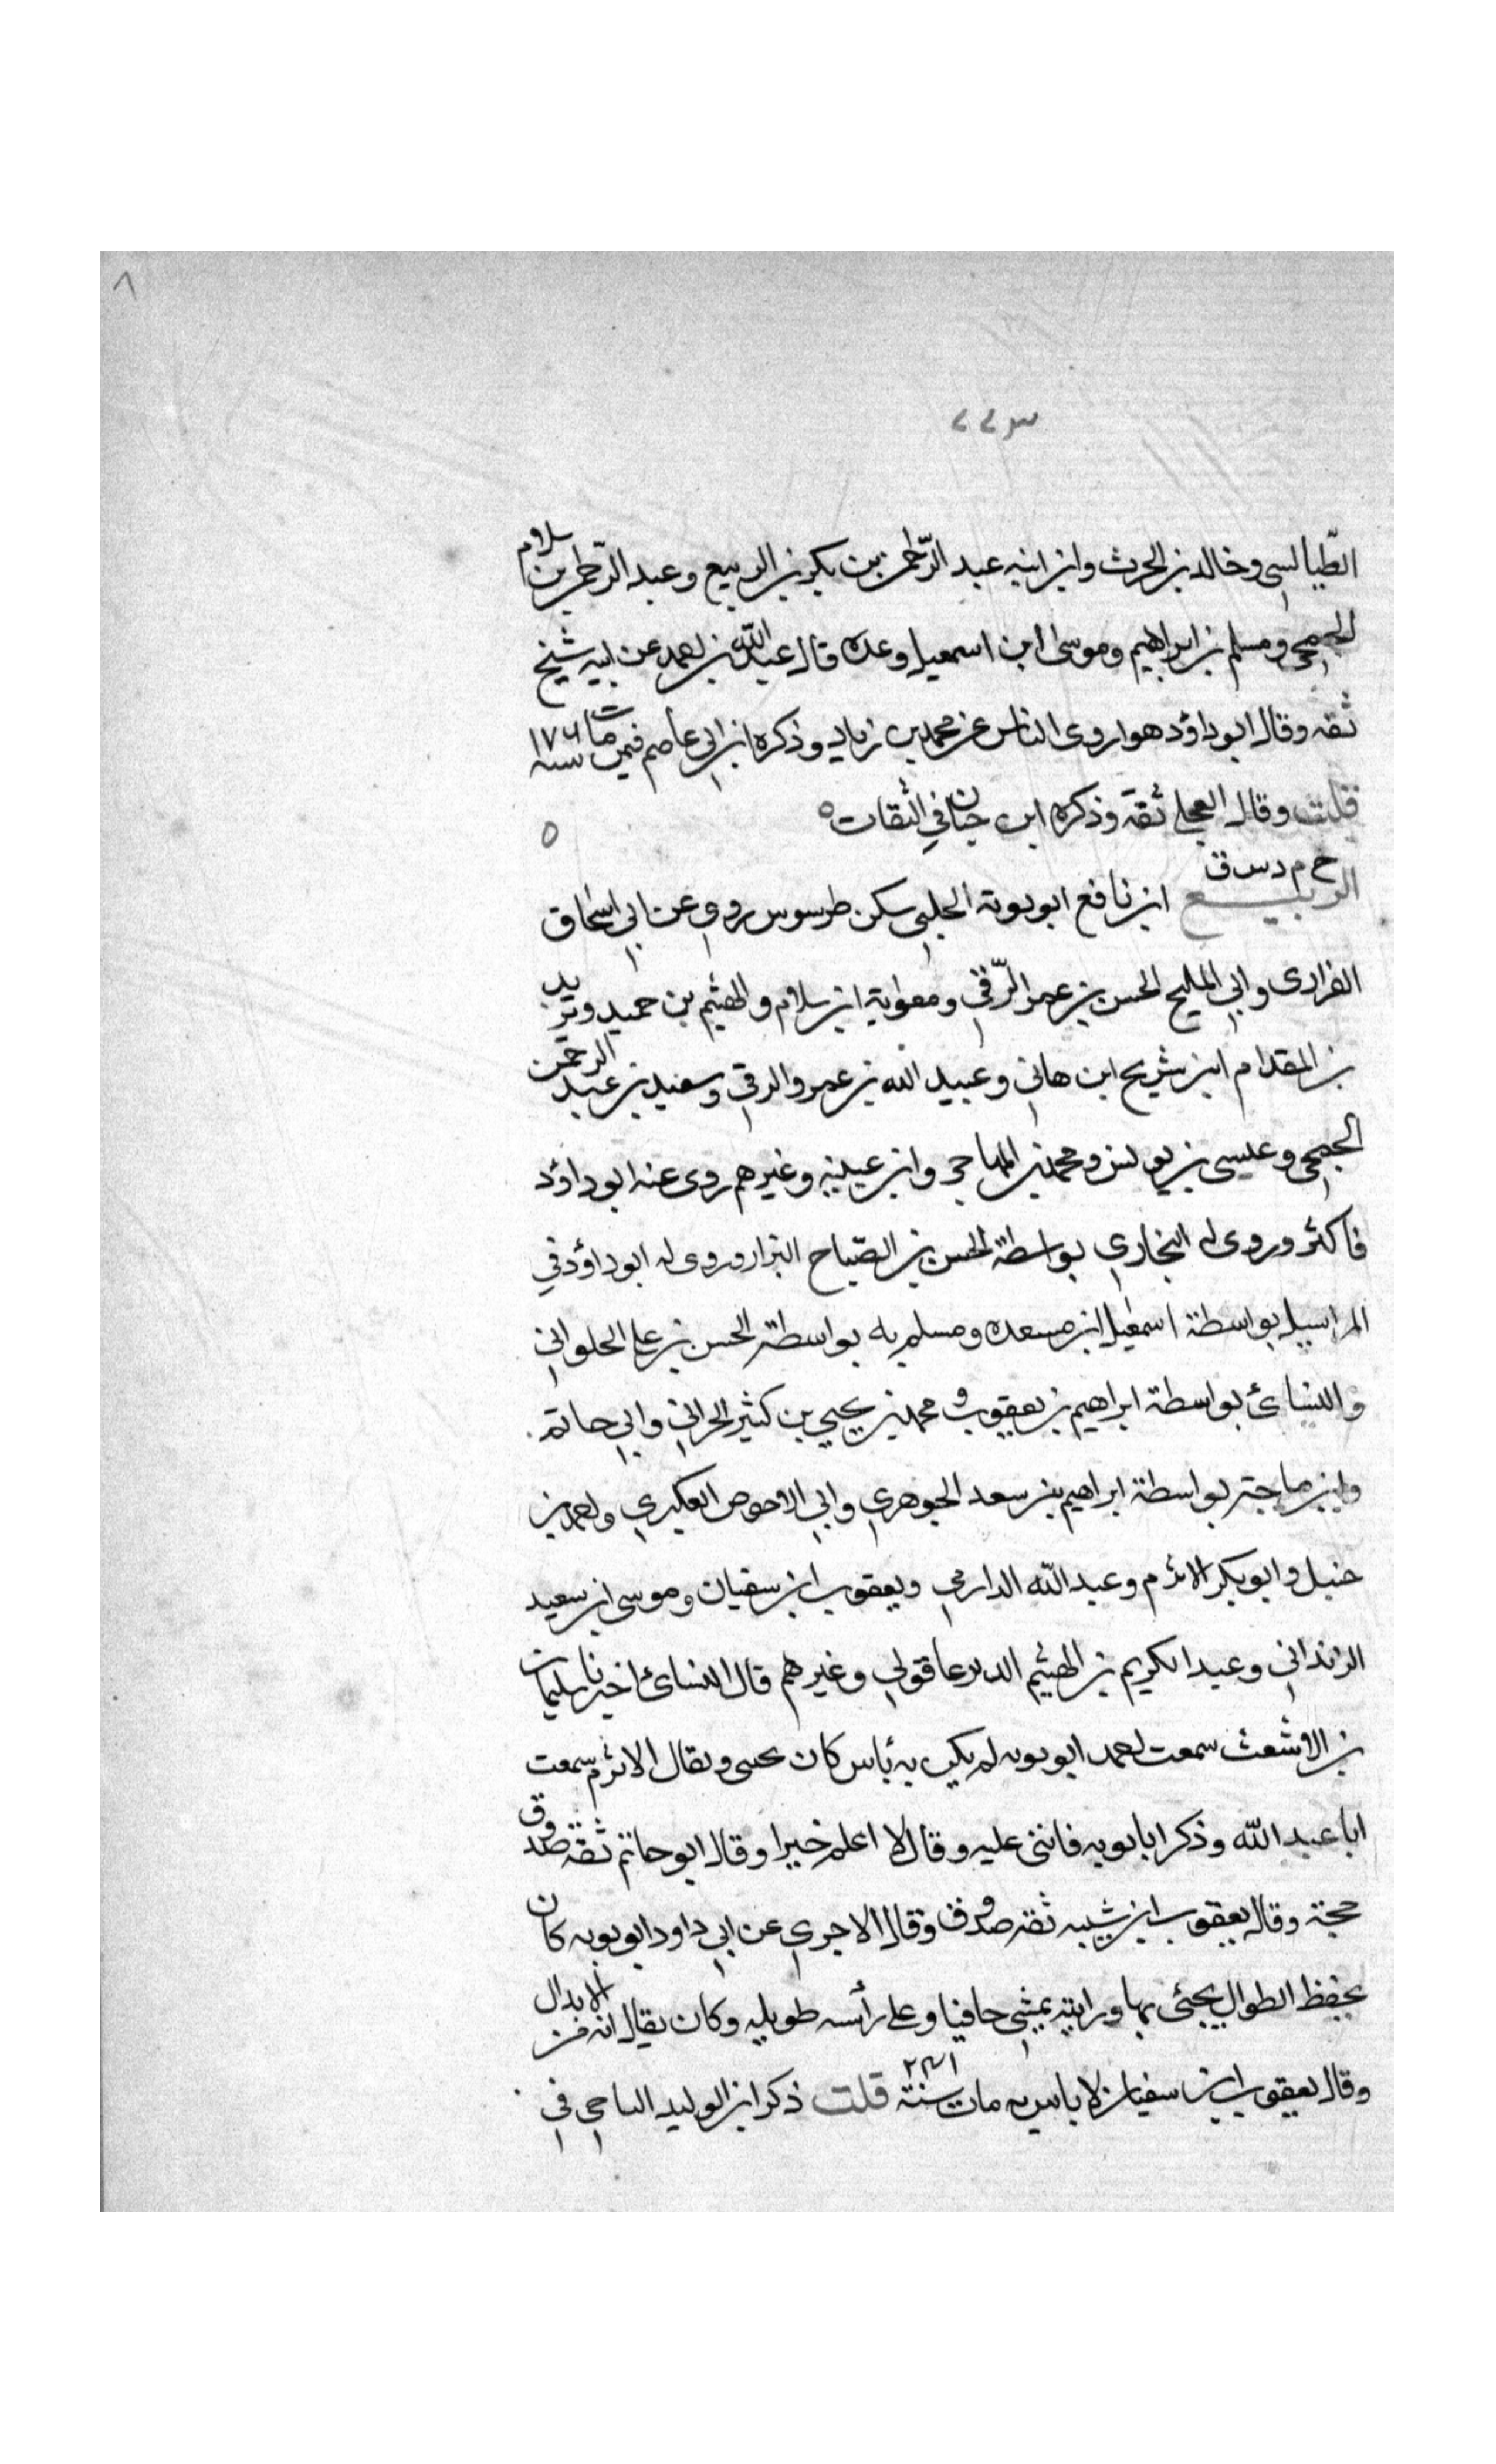 ٨
٢٢٣
الطّيالسي وخالد بن الحرث وابن ابنه عبد الرّحمن بن بكر بن الربيع وعبد الرّحمن بن سلام
الجمحي ومسلم بن ابراهيم وموسى ابن اسمعيل وعده قال عبد الله بن احمد عن ابيه شيخ
ثقه وقال ابو داؤد هو اروى الناس عن محمد بن زياد وذكره ابن ابي عاصم فيمن مات سنه ١٧٦
قلت وقال العجلي ثقة وذكره ابن حبان في الثقات ٥ ٥
خ م د س ق
الربيع ابن نافع ابو توبة الحلبي سكن طرسوس روى عن ابي اسحاق
الفزارى وابي المليح الحسن بن عمر الرّقي ومعوية ابن سلام والهثيم بن حميد ويزيد
بن المقدام ابن شريح ابن هاني وعبيد الله بن عمرو الرقي وسعيد بن عبد الرحمن
الجمحي وعيسى بن يونس ومحمد بن المهاجر وابن عيينه وغيرهم روى عنه ابو داؤد
فاكثر وروى له البخاري بواسطة الحسن بن الصّباح البزار وروى له ابو داؤد في
المراسيل بواسطة اسمعيل ابن مسعده ومسلم به بواسطة الحسن بن علي الحلواني
والنسائ بواسطة ابراهيم بن يعقوب ومحمد بن يحيي بن كثير الحراني وابي حاتم
وابن ماجة بواسطة ابراهيم بن سعد الجوهري وابي الاحوص العكبري واحمد بن
حنبل وابو بكر الاثرم وعبد الله الدارمي ويعقوب ابن سفيان وموسى ابن سعيد
الدنداني وعبد الكريم بن الهثيم الديرعاقولي وغيرهم قال النسائ اخبرنا سليمان
بن الاشعث سمعت احمد ابو توبه لم يكن به بأس كان يحيى وقال الاثرم سمعت
ابا عبد الله وذكر ابا توبه فاثنى عليه وقال لا اعلم خيرا وقال ابو حاتم ثقة صدوق
حجة وقال يعقوب ابن شيبه ثقة صدوق وقال الاجري عن ابي داود ابو توبه كان
يحفظ الطوال يجئ بها ورايته يمشي حافيا وعلى رأسه طويله وكان يقال انه من الابدال
وقال يعقوب ابن سفيان لا باس به مات سنة ٢٤١ قلت ذكر ابن الوليد الباجي في